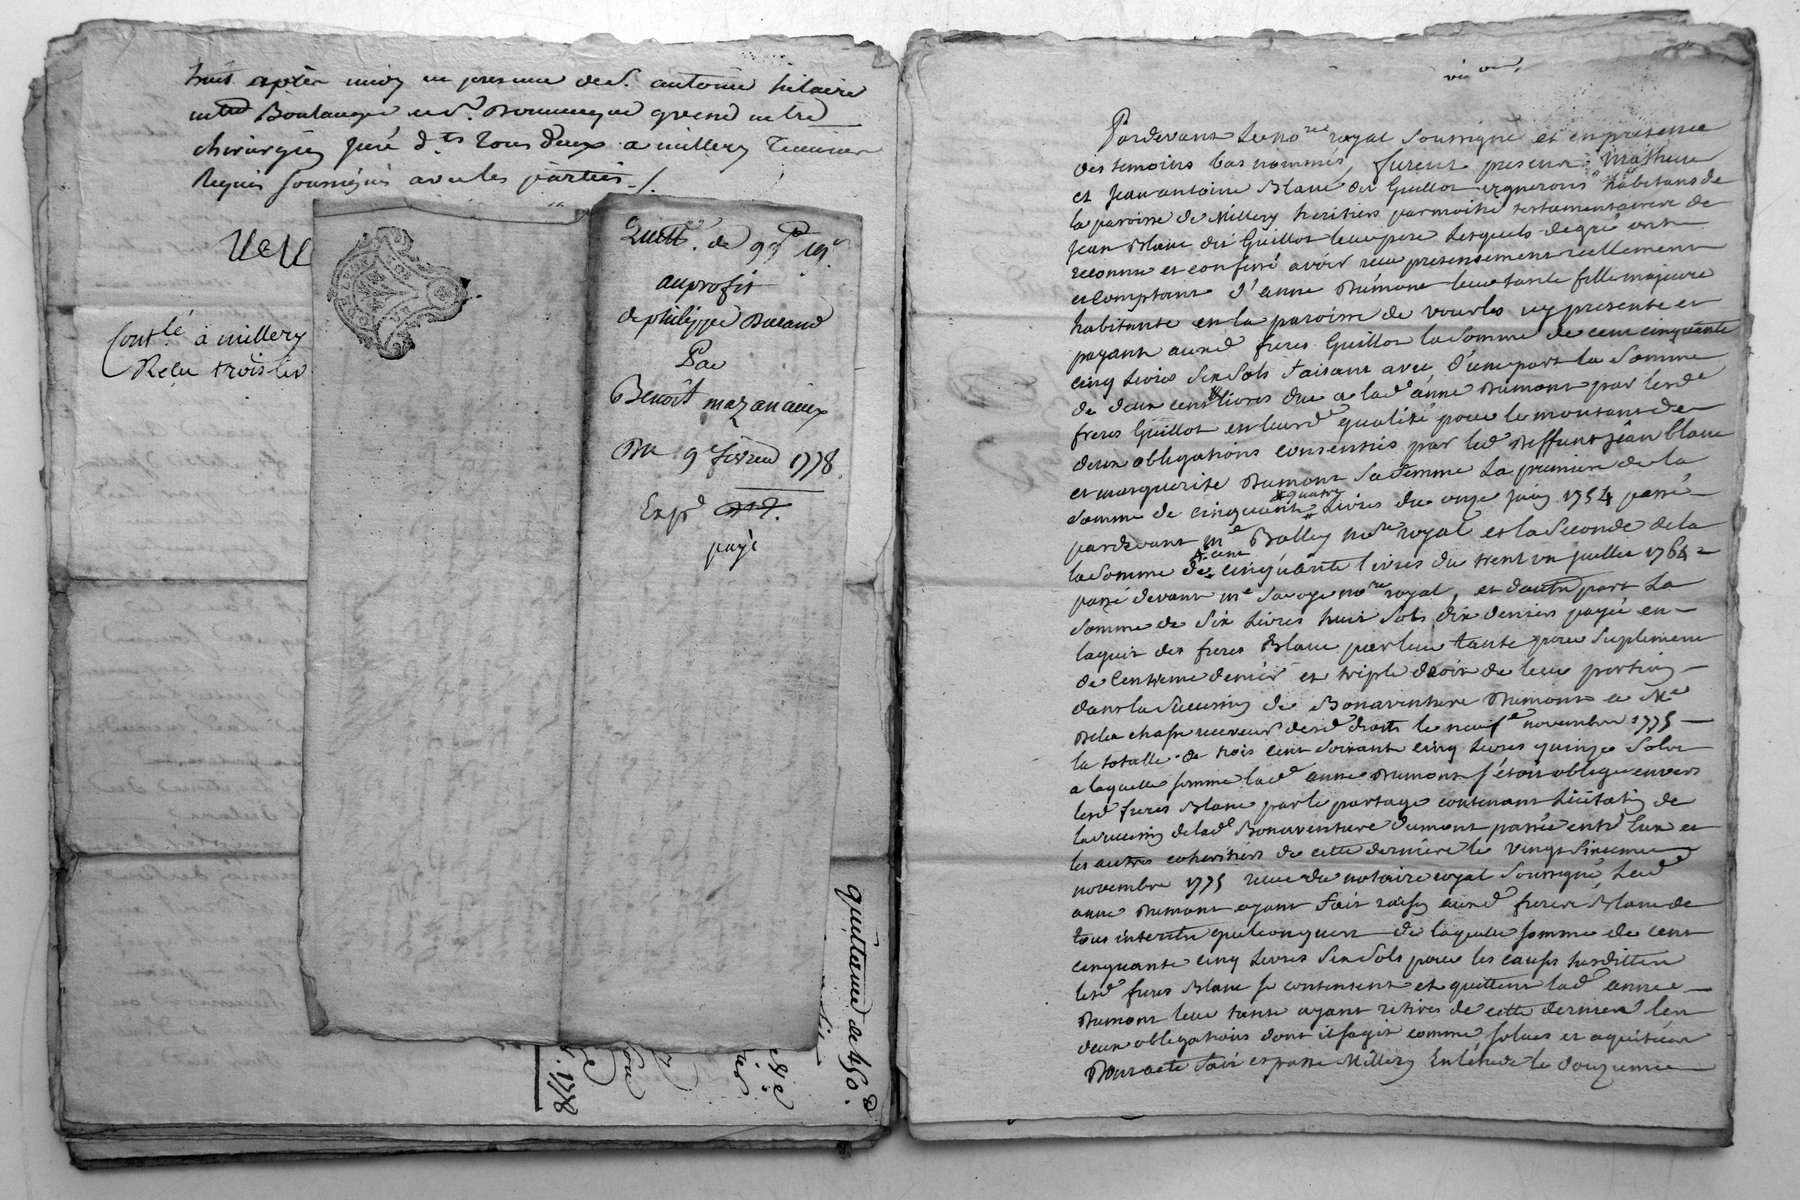 huit après midy en presence de S. antoine hilaire
m.tre Boulanger et S.r Dominique grend m.tre
chirurgien juré d.ts tous deux a millery temoins
Requis soussignés avec les parties ./.
Cont.lé à millery
Reçu trois liv
GEN DE LYON
Quitt.ce de 99
au profit
de philippe Durand
Par
Benoît mazancieux
Du 9 fevrier 1778.
Exp.
payé
quittance de 450.
1778
Pardevant Le no.re royal soussigné et en presence
des temoins bas nommés, furent presents mathieu
et Jean antoine Blanc dit Guillot vignerons habitans de
la paroisse de Millery heritiers par moitié testamentaires de
Jean Blanc dit Guillot leur pere Lesquels de gré ont
reconnu et confessé avoir reçu presentement reellement
et comptant d'anne Dumont leur tante fille majeure
habitante en la paroisse de vourles icy presente et
payant auxd. freres Guillot la somme de cent cinquante
cinq Livres six sols faisant avec d'une part la somme
de deux cent livres due a lad. anne Dumont par lesd.
freres Guillot en leurd. qualité pour le montant de
deux obligations consenties par led. deffunt jean blanc
et marguerite Dumont sa femme La premiere de la
somme de cinquante quatre Livres du onze juin 1754 passé
pardevant m.e Balley no.re royal et la seconde de la
la somme de cent cinquante livres du trent un juillet 1764
passé devant m.e Savoye no.re royal, et d'autre part La
somme de six Livres huit sols dix deniers payée en
laquit des freres Blanc par leur tante pour suplement
de Centieme denier et triple droit de leur portion
dans la succession de Bonaventure Dumont a M.e
Delachasse receveur desd. droits le neuf novembre 1775
la totalle de trois cent soixante cinq Livres quinze sols
a laquelle somme lad. anne Dumont s'étoit obligée envers
lesd. freres Blanc par le partage contenant Licitation de
la succession de lad. Bonaventure dumont passée entre Eux et
les autres coheritiers de cette derniere le vingt sixieme
novembre 1775 reçue du notaire royal soussigné, Lad.
anne Dumont ayant fait raison auxd. freres Blanc de
tous interets quelconques de laquelle somme de cent
cinquante cinq Livres six sols pour les causes susdittes
lesd. freres Blanc se contentent et quittent lad. anne
Dumont leur tante ayant retirés de cette derniere les
deux obligations dont il sagit comme solues et aquittées
Dont acte fait et passé Millery En l'étude le douzieme